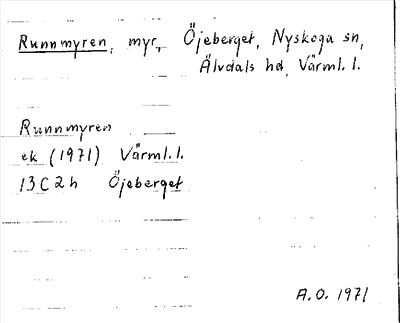 Runnmyren, myr, Öjeberget, Nyskoga sn,
Älvdals hd, Värml. l.
Runnmyren
ek (1971) Värml. l.
13C2h Öjeberget
A.O. 1971